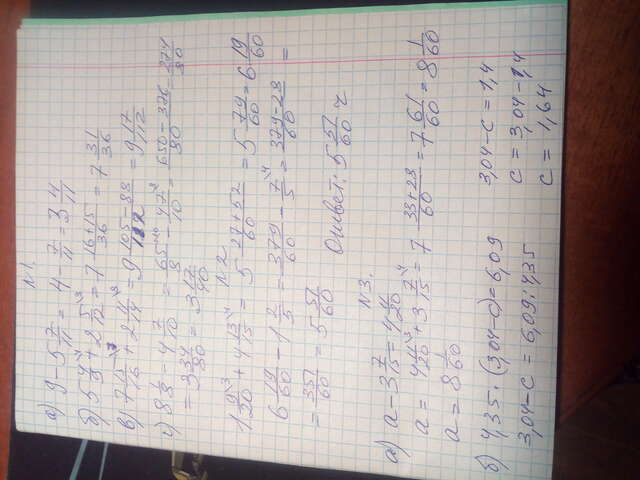 №1.
а) 9 - 5 7/11 = 4 - 7/11 = 3 4/11
б) 5 4/9 + 2 5/12 = 7 16+15/36 = 7 31/36
в) 7 + 2 = 9 105-88/112 = 9 17/112
г) 8 1/8 - 4 7/10 = 65/8 - 47/10 = 650-376/80 = 274/80
= 3 34/80 = 3 17/40
№2.
1 9/20 + 4 13/15 = 5 27+52/60 = 5 79/60 = 6 19/60
6 19/60 - 1 2/5 = 379/60 - 7/5 = 379-28/60 =
= 351/60 = 5 51/60
Ответ: 5 51/60 ч
№3.
а) a - 3 7/15 = 4 11/20
a = 4 11/20 + 3 7/15 = 7 33+28/60 = 7 61/60 = 8 1/60
a = 8 1/60
б) 4,35 · (3,04-c) = 6,09
3,04-c = 6,09:4,35
3,04-c = 1,4
c = 3,04-1,4
c = 1,64